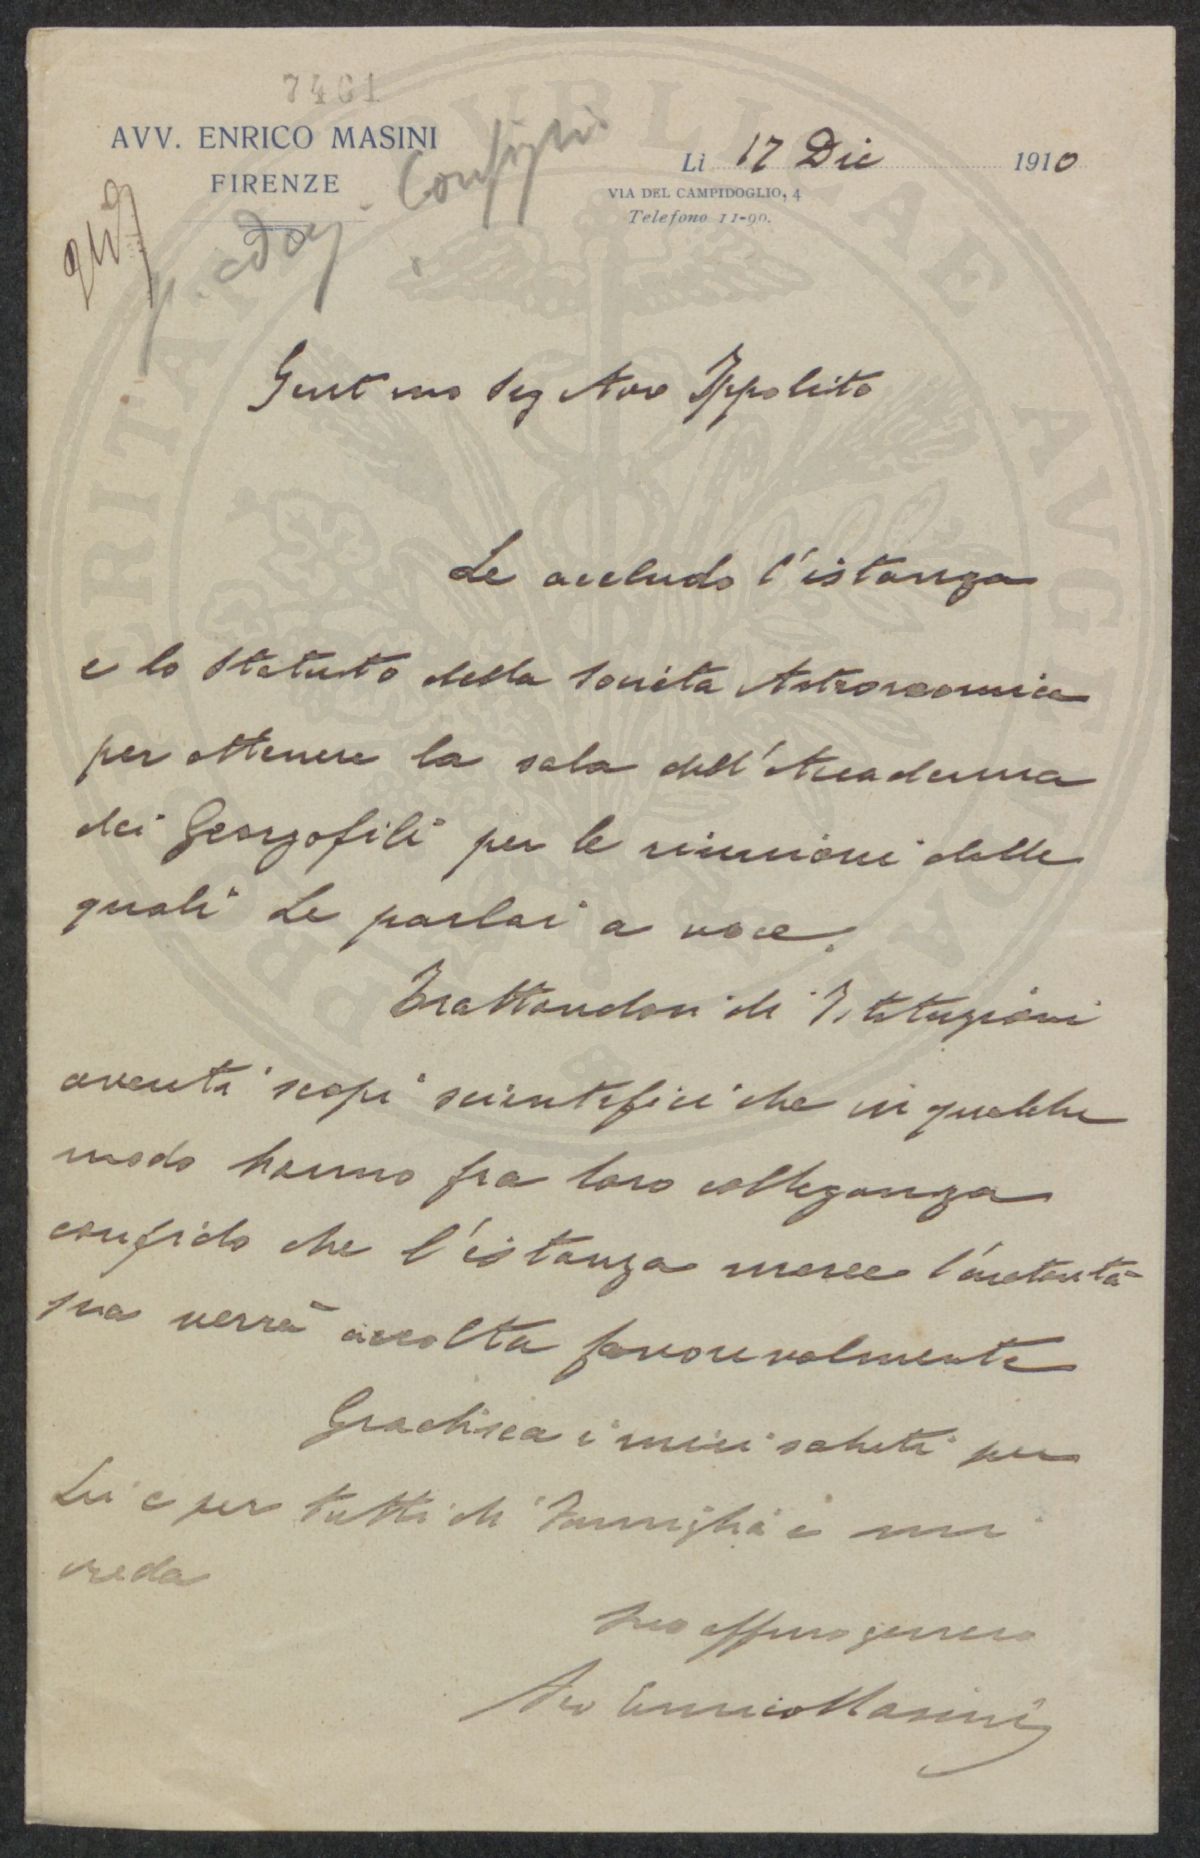 7461
AVV. ENRICO MASINI
FIRENZE
Consiglio
Li 17 Dic 1910
VIA DEL CAMPIDOGLIO, 4
Telefono 11-90.
Gent mo Sig Avv Ippolito
Le accludo l'istanza
e lo Statuto della Società Astronomica
per ottenere la sala dell'Accademia
dei Georgofili per le riunioni delle
quali Le parlai a voce.
Trattandosi di Istituzioni
aventi scopi scientifici che in qualche
modo hanno fra loro colleganza
confido che l'istanza mercè l'autorità
sua verrà accolta favorevolmente
Gradisca i miei saluti per
Lei e per tutti di famiglia e mi
creda
Suo affmo genero
Avv Enrico Masini
PROSPERITATI PVBLICAE AVGENDAE